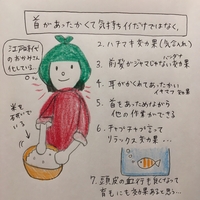 首があったかくて気持ちイイだけではなく、
江戸時代
のおかみさん
化している…
米を
といでいる
2. ハチマキ効果(気合入れ)
3. 前髪がジャマじゃないバンダナ効果
4. 耳がかくれてあったかい
イヤマフ効果
5. 首をあたためながら
他の作業ができる
6. チャプチャプ言って
リラックス効果…
7. 頭皮の血行も良くなって
育毛にも効果あると思う…